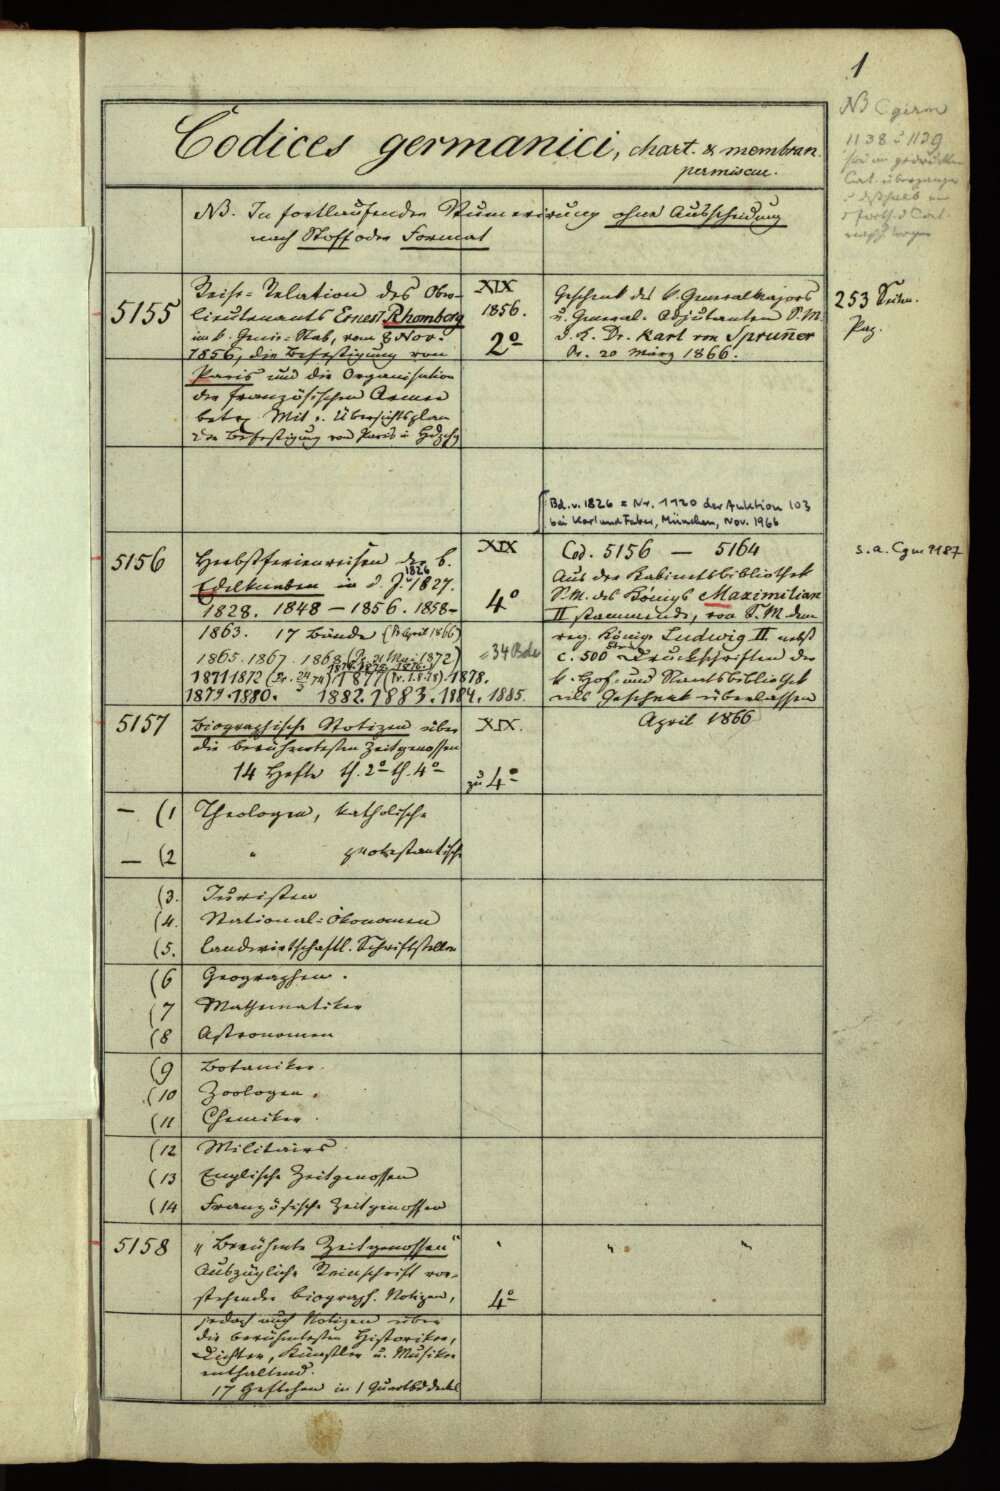 1
NB Cgerm
1138 – 1139
Codices germanici, chart. & membran.
permiscue.
NB. In fortlaufender Numerirung ohne Ausscheidung
nach Stoff oder Format
5155
Reise-Relation des Ober-
lieutenants Ernest Rhomberg
im k. Genie-Stab, vom 8 Nov.
1856, die Befestigung von
Paris und die Organisation
der französischen Armee
betr. Mit 1. Übersichtsplan
der Befestigung von Paris
XIX
1856.
2º
Geschenk des k. Generalmajors
u. General-Adjutanten S. M.
d. K. Dr. Karl von Spruner
Pr. 20 März 1866.
253 Seiten.
Pag.
Bd. v. 1826 = Nr. 1120 der Auktion 103
bei Karl und Faber, München, Nov. 1966
5156
Herbstferienreisen der k.
Edelknaben in d. J. 1826 1827.
1828. 1848 – 1856. 1858–
1863. 17 Bände (Pr. April 1866)
1865. 1867. 1868 (Pr. 21 Mai 1872)
1874. 1875. 1876.
1871 1872 (Pr. 24/3 74) 1877 (Pr. 1.8.78) 1878.
1879. 1880. 1882. 1883. 1884. 1885.
XIX
4º
= 34 Bde
Cod. 5156 — 5164
Aus der Kabinetsbibliothek
S. M. des Königs Maximilian
II stammend, von S. M. dem
reg. König Ludwig II nebst
c. 500 Druckschriften der
k. Hof- und Staatsbibliothek
als Geschenk überlassen
April 1866
s. a. Cgm 9187
5157
Biographische Notizen über
die berühmtesten Zeitgenossen
14 Hefte th. 2º th. 4º
XIX.
zu 4º
— (1 Theologen, katholische
— (2 " protestantische
(3. Juristen
(4. National-Ökonomen
(5. Landwirtschaftl. Schriftsteller
(6 Geographen.
(7 Mathematiker
(8 Astronomen
(9 Botaniker.
(10 Zoologen.
(11 Chemiker.
(12 Militairs
(13 Englische Zeitgenossen
(14 Französische Zeitgenossen
5158
„Berühmte Zeitgenossen"
Auszügliche Reinschrift vor-
stehender biograph. Notizen,
jedoch auch Notizen über
die berühmtesten Historiker,
Dichter, Künstler u. Musiker
enthaltend.
17 Heftchen in 1 Quartbd
" " "
4º